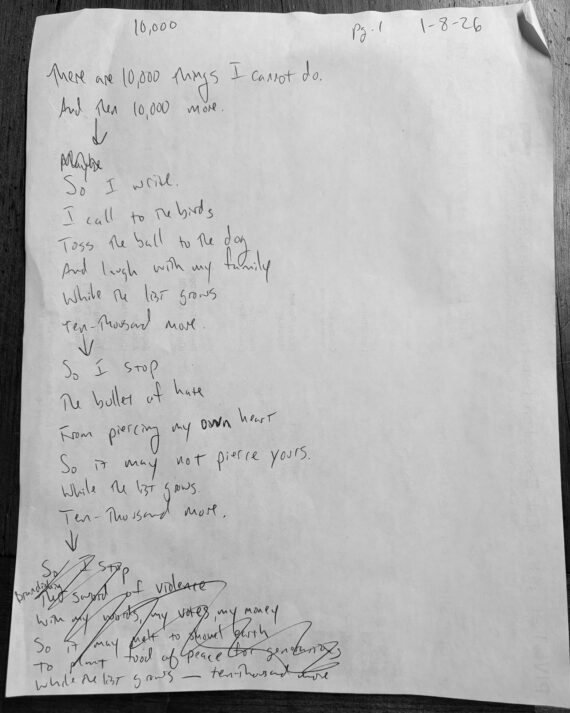 10,000
pg. 1
1-8-26
There are 10,000 things I cannot do.
And then 10,000 more.
Maybe
So I write.
I call to the birds
Toss the ball to the dog
And laugh with my family
While the list grows
Ten-thousand more.
So I stop
The bullet of hate
From piercing my own heart
So it may not pierce yours.
While the list grows
Ten-thousand more.
So I stop
Brandishing
The sword of violence
With my words, my votes, my money
So it may melt to shovel earth
To plant food of peace for generations
While the list grows — ten-thousand more